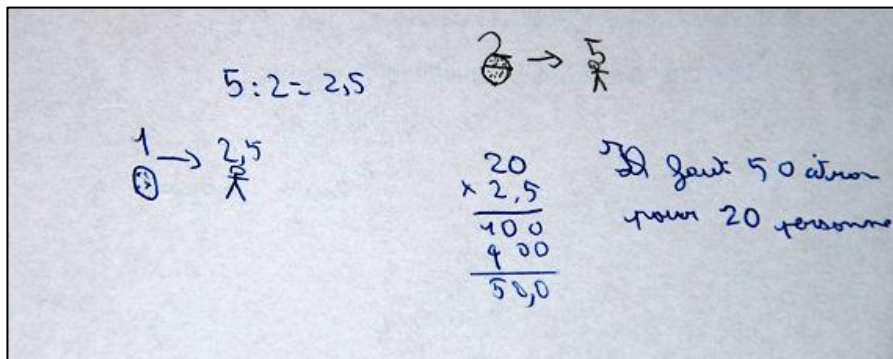 2 → 5
5 : 2 = 2,5
1 → 2,5
20
× 2,5
100
400
50,0
Il faut 50 citron
pour 20 personne